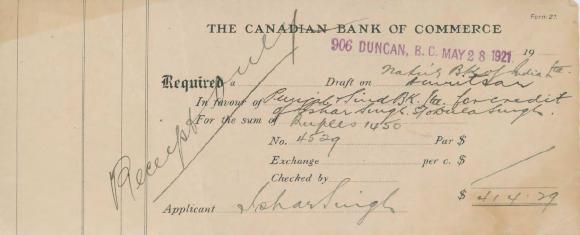 Form 27.
THE CANADIAN BANK OF COMMERCE
906 DUNCAN, B.C. MAY 28 1921. 19
Receipt only
Nat'l Bk of India Ltd.
Required a Draft on Amritsar
In favour of Punjab & Sind Bk. Ltd. for credit
of Ishar Singh. S/o Doula Singh.
For the sum of Rupees 1450
No. 4529 Par $
Exchange per c. $
Checked by
$ 414.29
Applicant Ishar Singh